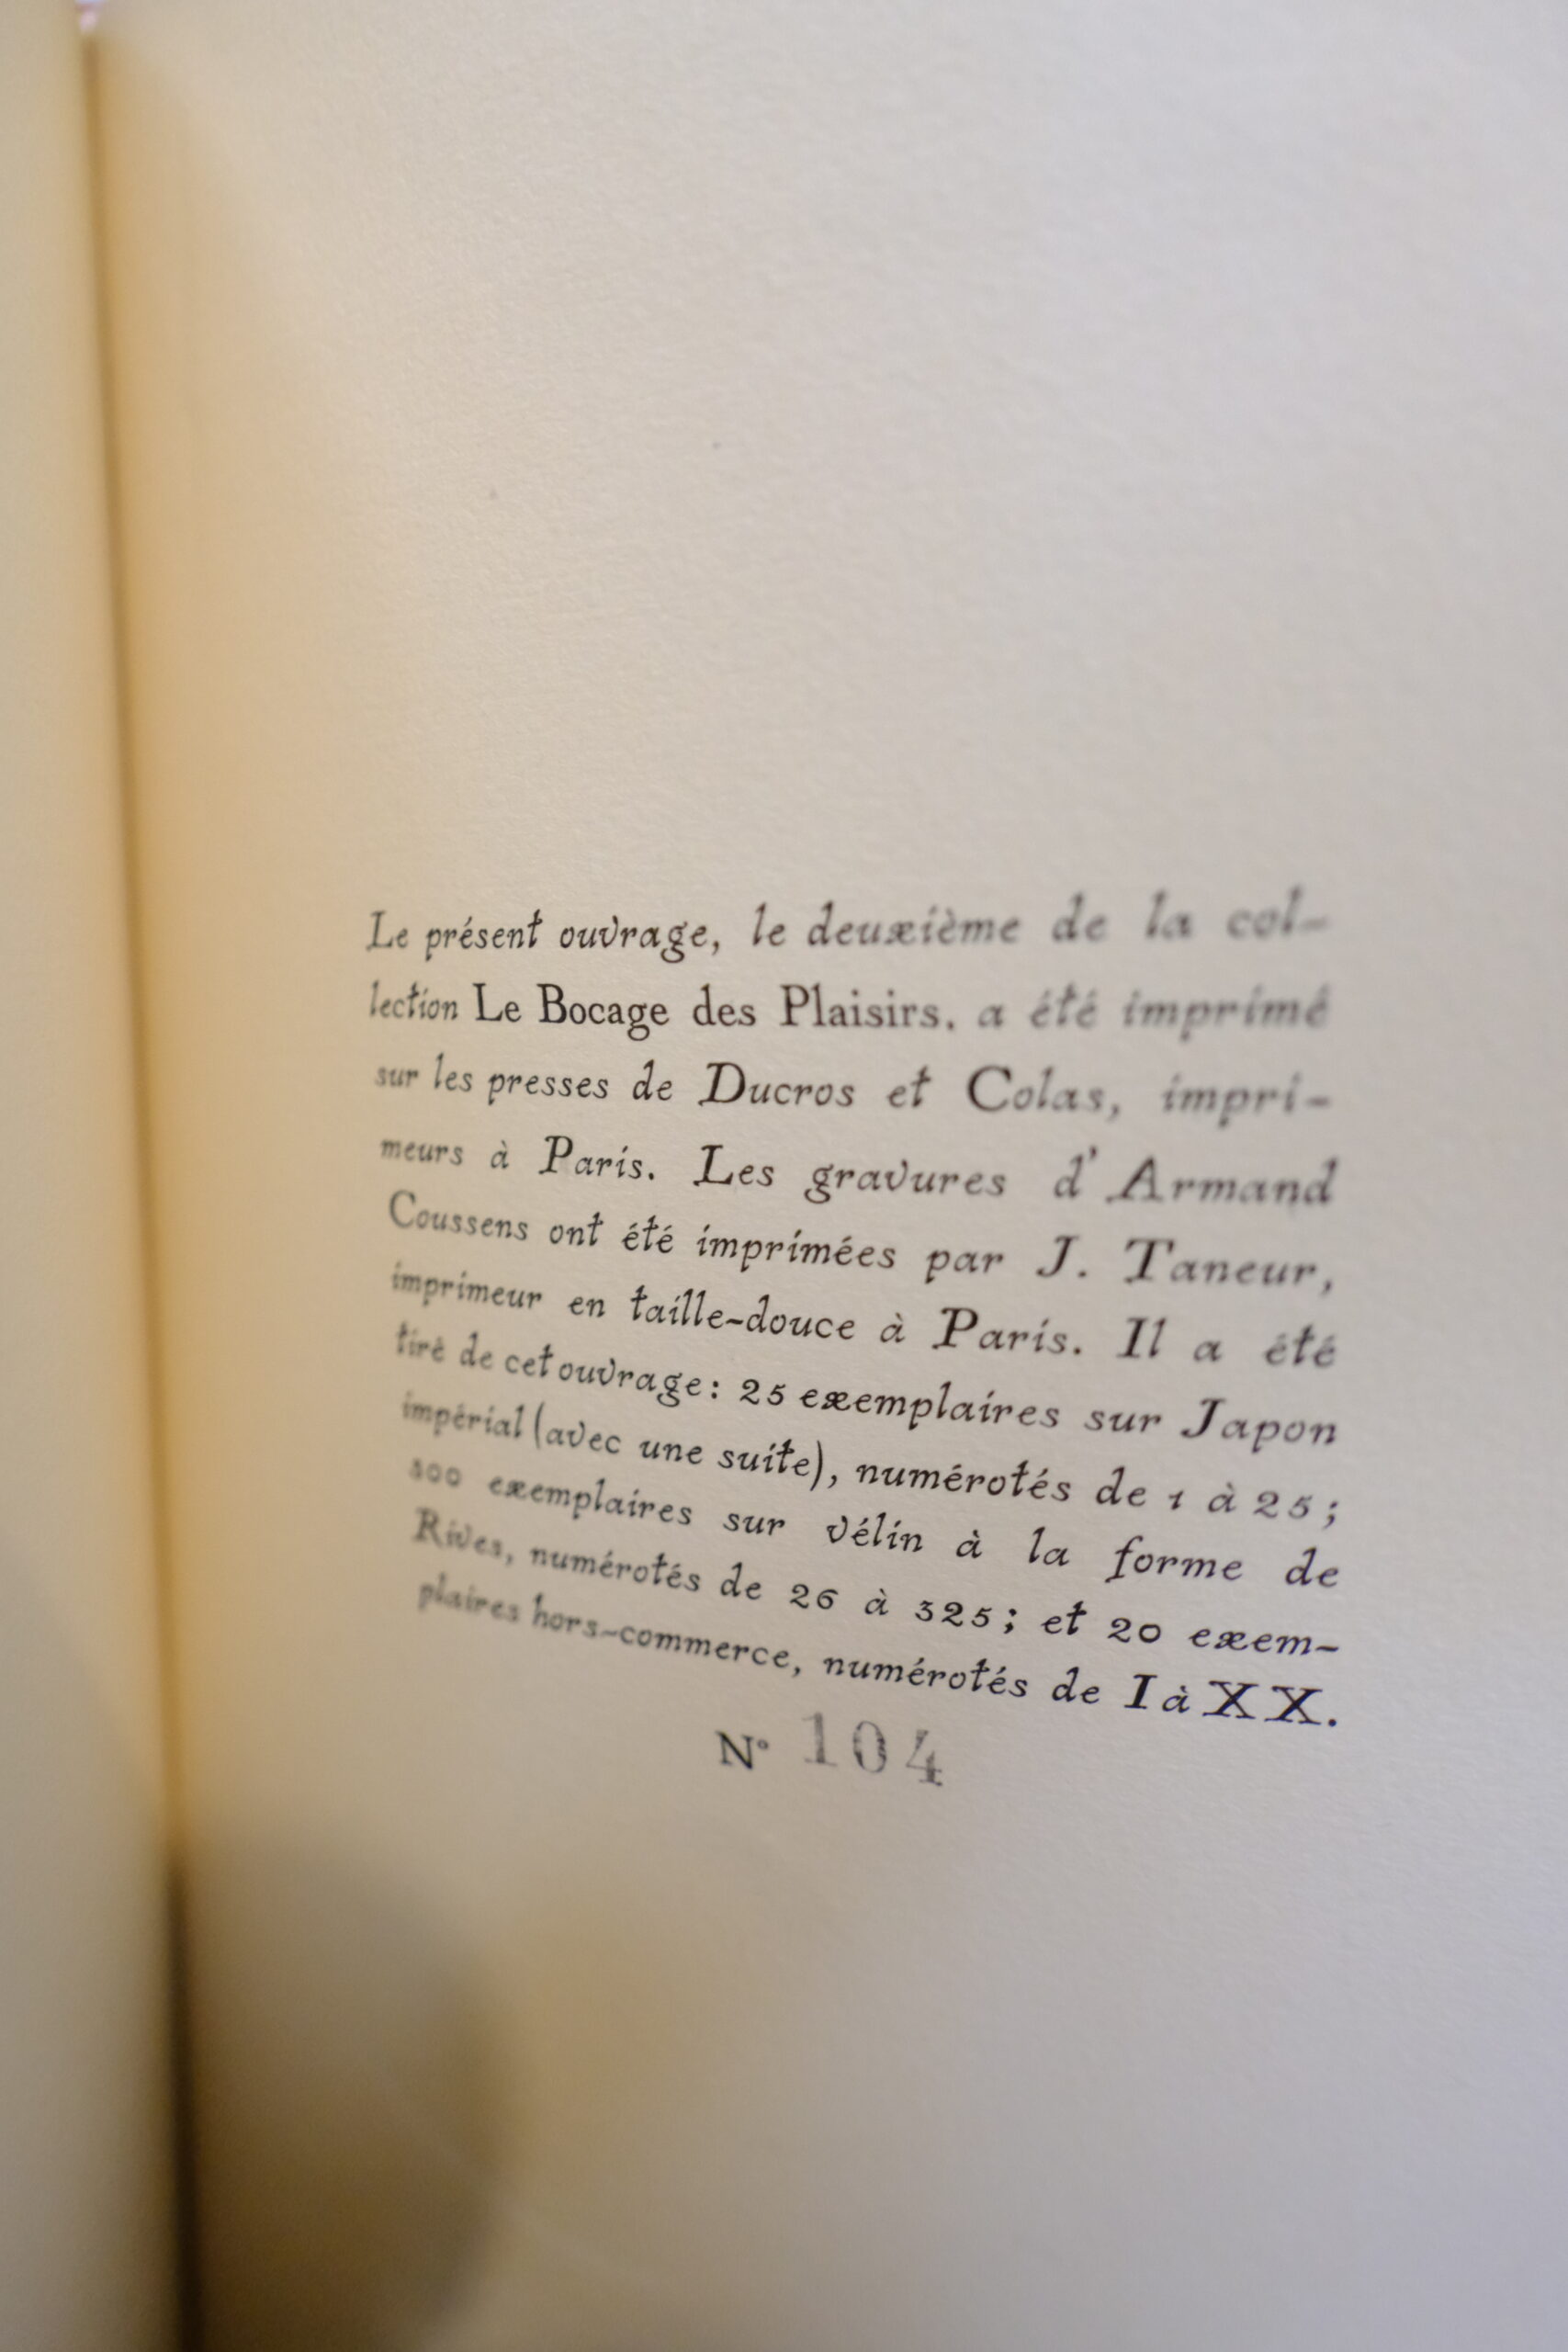 Le présent ouvrage, le deuxième de la col-
lection Le Bocage des Plaisirs, a été imprimé
sur les presses de Ducros et Colas, impri-
meurs à Paris. Les gravures d'Armand
Coussens ont été imprimées par J. Taneur,
imprimeur en taille-douce à Paris. Il a été
tiré de cet ouvrage : 25 exemplaires sur Japon
impérial (avec une suite), numérotés de 1 à 25 ;
300 exemplaires sur vélin à la forme de
Rives, numérotés de 26 à 325 ; et 20 exem-
plaires hors-commerce, numérotés de I à XX.
N° 104